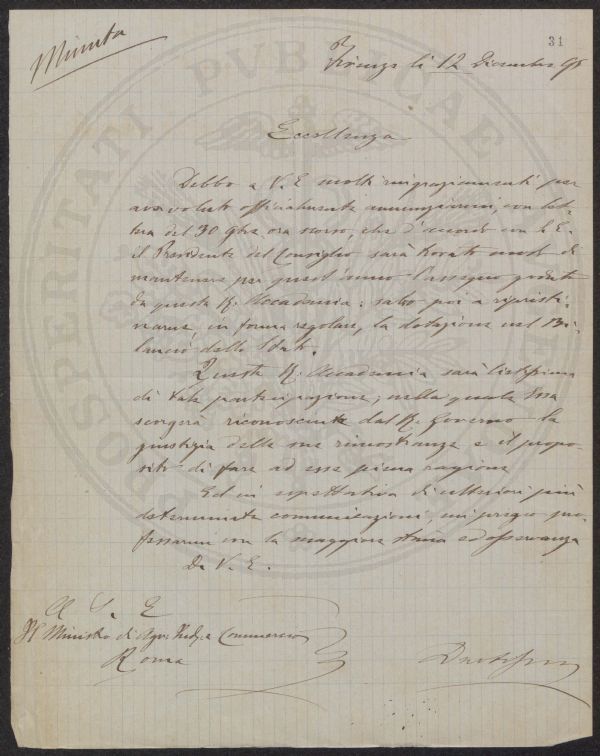 Minuta
31
Firenze li 12 Dicembre 95
Eccellenza
Debbo a V. E. molti ringraziamenti per
aver voluto officialmente annunziarmi, con let-
tera del 30 9bre ora scorso, che d'accordo con S. E.
il Presidente del Consiglio sarà trovato modo di
mantenere per quest'anno l'assegno goduto
da questa R. Accademia; salvo poi a ripristi-
narne, in forma regolare, la dotazione nel Bi-
lancio dello Stato.
Questa R. Accademia sarà lietissima
di tale partecipazione, nella quale Essa
scorgerà riconosciuta dal R. Governo la
giustizia delle sue rimostranze e il propo-
sito di fare ad esse piena ragione
Ed in aspettativa di ulteriori più
determinate comunicazioni, mi pregio pro-
fessarmi con la maggiore stima ed osservanza
Di V. E.
A S. E
Il Ministro di Agr. Ind. e Commercio
Roma
PROSPERITATI PUBLICAE